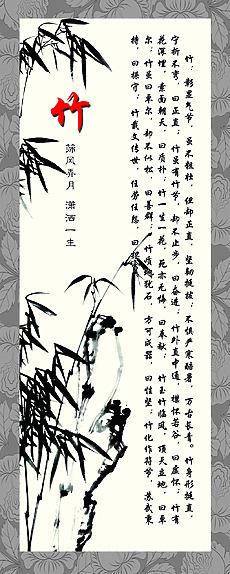 竹
筛风弄月 潇洒一生
竹，彰显气节，虽不粗壮，但却正直，坚韧挺拔；不惧严寒酷暑，万古长青。竹身形挺直，
宁折不弯，曰正直；竹虽有竹节，却不止步，曰奋进；竹外直中通，襟怀若谷，曰虚怀；竹有
花深埋，素面朝天，曰质朴；竹一生一花，死亦无悔，曰奉献；竹玉竹临风，顶天立地，曰卓
尔；竹虽曰卓尔，却不似松，曰善群；竹质地犹石，方可成器，曰性坚；竹化作符节，苏武秉
持，曰操守；竹载文传世，任劳任怨，曰